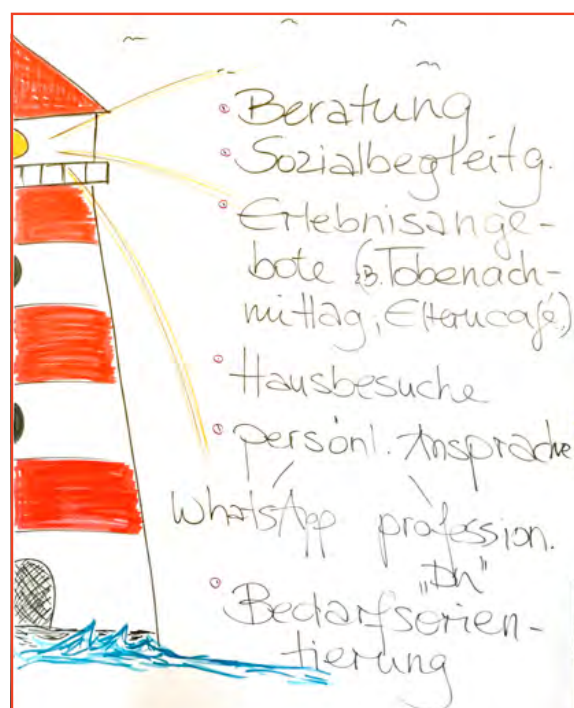 Beratung
Sozialbegleitg.
Erlebnisange-
bote (z.B. Tobenach-
mittag, Elterncafé,)
Hausbesuche
persönl. Ansprache
WhatsApp profession.
„Du“
Bedarfsorien-
tierung